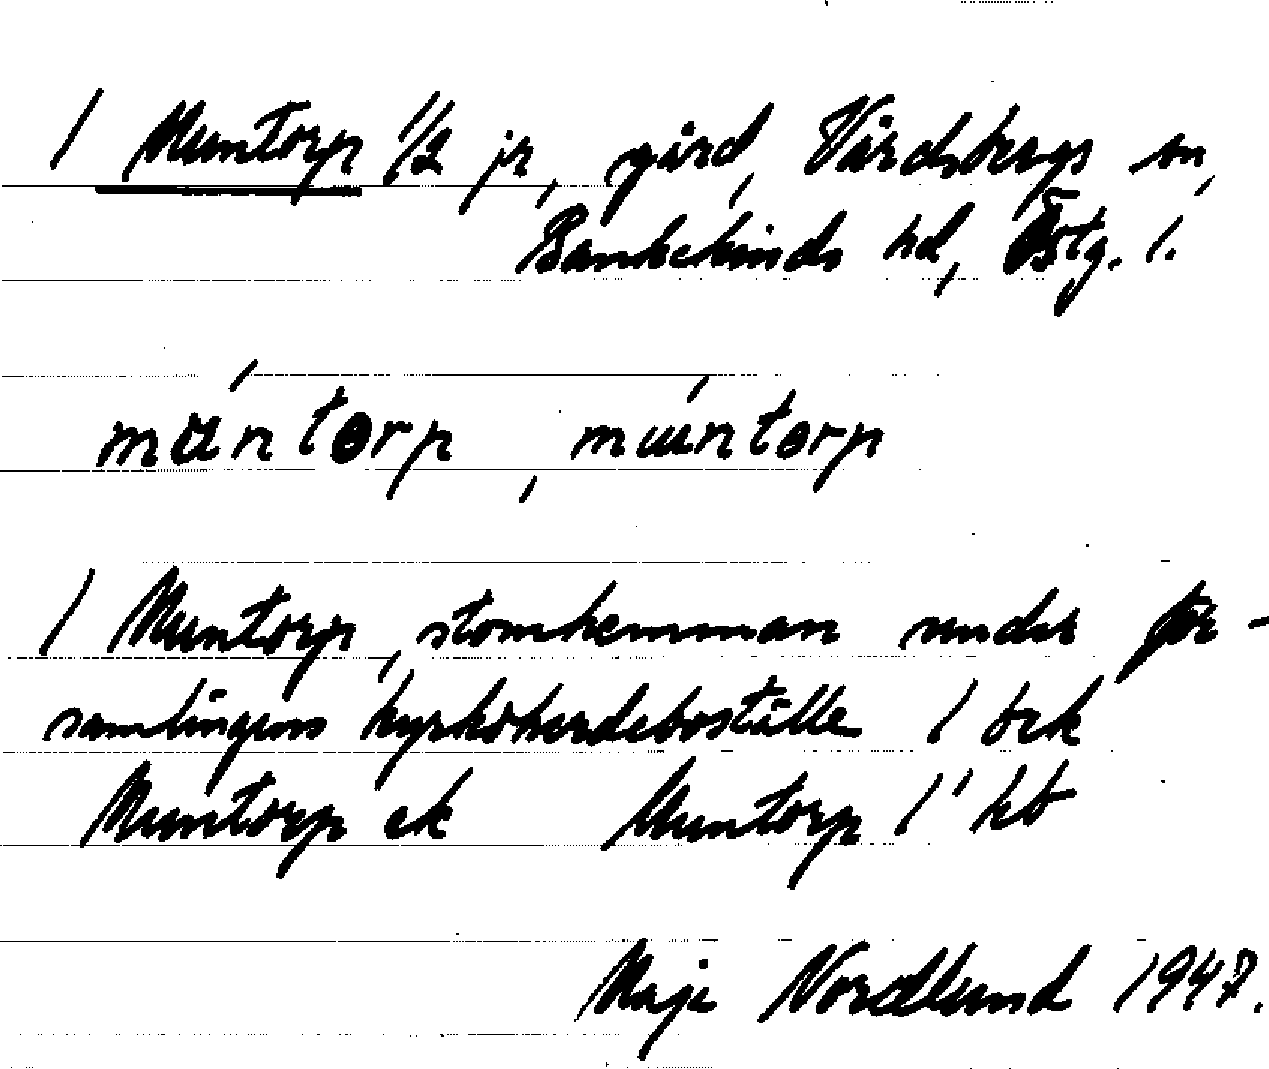 / Muntorp 1/2 jr, gård, Vårdsbergs sn,
Bankekinds hd, Östg. l.
múntorp, múntorp
/ Muntorp, stomhemman under för-
samlingens kyrkoherdeboställe / ock
Muntorp ek Muntorp /
Maje Nordlund 1947.